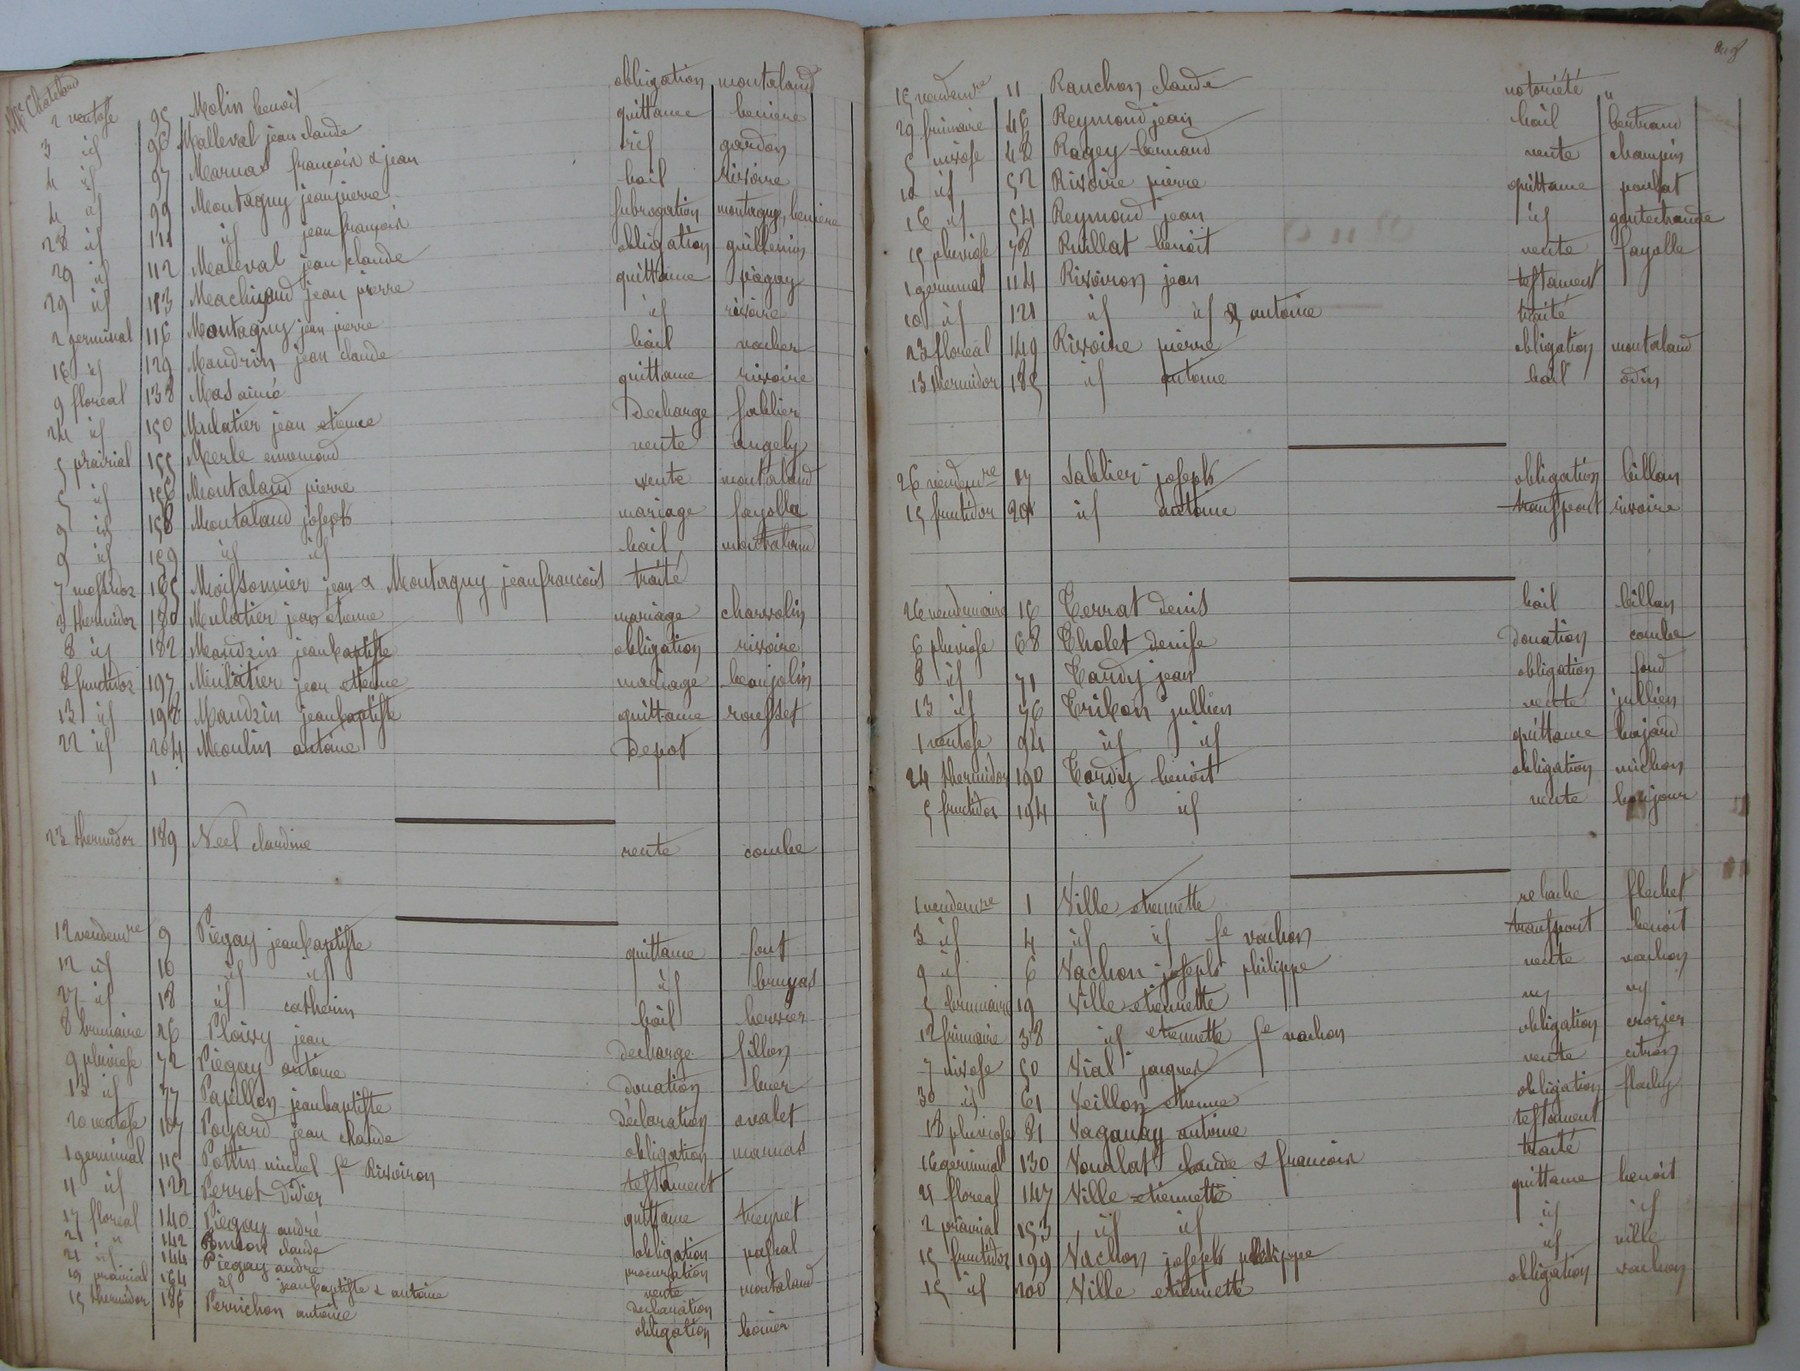 Me Chateland
2 ventose 95 Molin benoit obligation montaland
3 id 96 Malleval jean claude quittance beniere
4 id 97 Marnas françois & jean id gardon
4 id 99 Montagny jeanpierre bail rivoire
28 id 111 id jean françois subrogation montagny, beniere
29 id 112 Maleval jean claude obligation guillemin
29 id 113 Machizaud jean pierre quittance piegay
2 germinal 116 Montagny jean pierre id rivoire
16 id 129 Mandrin jean claude bail vacher
9 floréal 138 Mas aimé quittance rivoire
24 id 150 Mulatier jean etienne Decharge sablier
5 prairial 155 Merle ennemond vente angely
5 id 156 Montaland pierre vente montaland
9 id 158 Montaland joseph mariage fayolle
9 id 159 id id bail montaland
7 messidor 165 Moissonnier jean & Montagny jeanfrancois traité
3 thermidor 180 Mulatier jean etienne mariage charvolin
8 id 182 Mandrin jeanbaptiste obligation rivoire
8 fructidor 197 Mulatier jean etienne mariage beaujolin
13 id 198 Mandrin jeanbaptiste quittance rousset
22 id 204 Moulin antoine Depot
23 thermidor 189 Neel claudine vente combe
12 vendemre 9 Piegay jeanbaptiste quittance font
12 id 10 id id id bruyas
27 id 18 id catherin bail bervier
8 brumaire 26 Ploivy jean
9 pluviose 72 Piegay antoine Decharge fillion
13 id 77 Papillon jeanbaptiste Donation
20 ventose 107 Poyard jean claude Déclaration ovalet
1 germinal 115 Pottin michel fe Rivoiron obligation marnas
11 id 122 Perrot Didier testament
17 floréal 140 Piegay andré quittance treynet
21 " 142 Poncon claude obligation pascal
21 id 144 Piegay andré procuration
19 prairial 164 id jeanbaptiste & antoine vente montaland
15 thermidor 186 Perrichon antoine Declaration
obligation boiron
15 vendemre 11 Ranchon claude notoriété "
29 frimaire 46 Reymond jean bail bertrand
5 nivose 48 Ragey bernard vente champin
10 id 52 Rivoire pierre quittance poulat
16 id 54 Reymond jean id goutertrande
15 pluviose 78 Ruillat benoit vente fayolle
1 germinal 114 Rivoiron jean testament
10 id 121 id id & antoine traité
23 floréal 149 Rivoire pierre obligation montaland
13 thermidor 185 id antoine bail odin
26 vendemre 17 Sablier joseph obligation billon
15 fructidor 201 id antoine transport rivoire
26 vendemiaire 16 Terrat denis bail billon
6 pluviose 68 Tholet denise Donation combe
8 id 71 Tardy jean obligation fond
13 id 76 Tribon jullien vente jullien
1 ventose 94 id id quittance bajard
24 thermidor 190 Tardy benoit obligation michon
5 fructidor 194 id id vente bonjour
1 vendemre 1 Ville etiennette relache flechet
3 id 4 id id fe vachon transport benoit
9 id 6 Vachon joseph philippe vente vachon
5 brumaire 19 Ville etiennette
12 frimaire 38 id etiennette fe vachon obligation crozier
7 nivose 50 Vial jacques vente citron
30 id 61 Veillon etienne obligation flachy
18 pluviose 81 Vaganay antoine testament
16 germinal 130 Voudat claude & francois traité
21 floréal 147 Ville etiennette quittance benoit
2 prairial 153 id id id id
15 fructidor 199 Vachon joseph philippe id ville
15 id 200 Ville etiennette obligation vachon